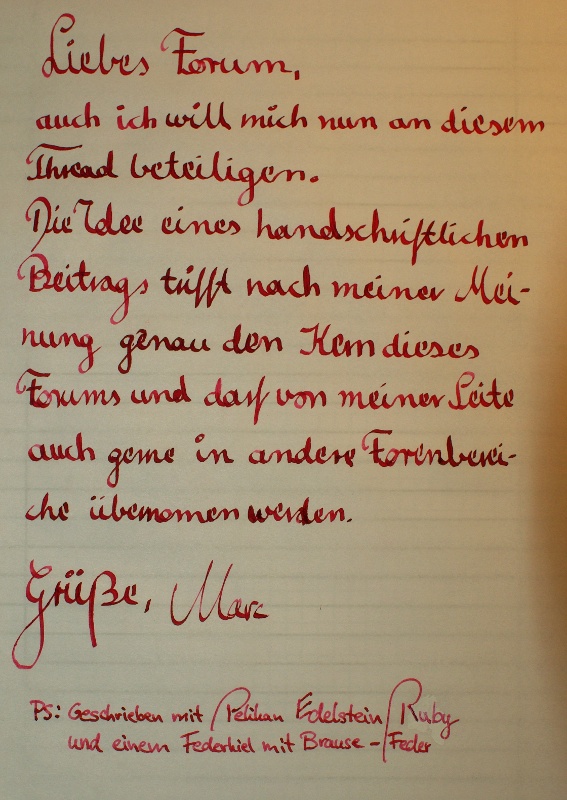 Liebes Forum,
auch ich will mich nun an diesem
Thread beteiligen.
Die Idee eines handschriftlichen
Beitrags trifft nach meiner Mei-
nung genau den Kern dieses
Forums und darf von meiner Seite
auch gerne in andere Forenberei-
che übernomen werden.
Grüße, Marc
PS: Geschrieben mit Pelikan Edelstein Ruby
und einem Federkiel mit Brause-Feder